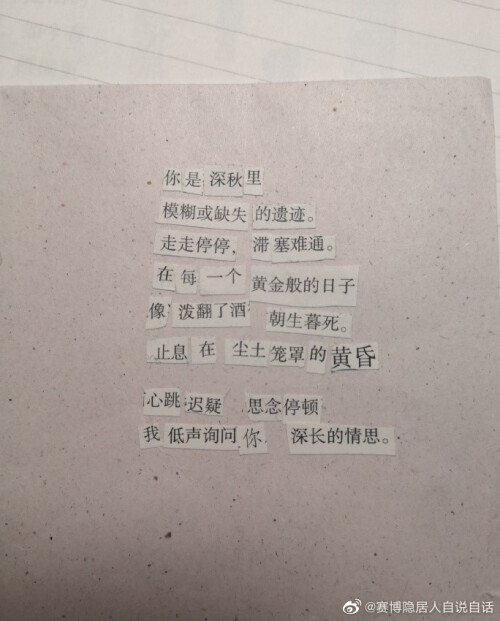 你是深秋里
模糊或缺失的遗迹。
走走停停，滞塞难通。
在每一个黄金般的日子
像泼翻了酒 朝生暮死。
止息在尘土笼罩的黄昏
心跳迟疑 思念停顿
我低声询问你 深长的情思。
@赛博隐居人自说自话